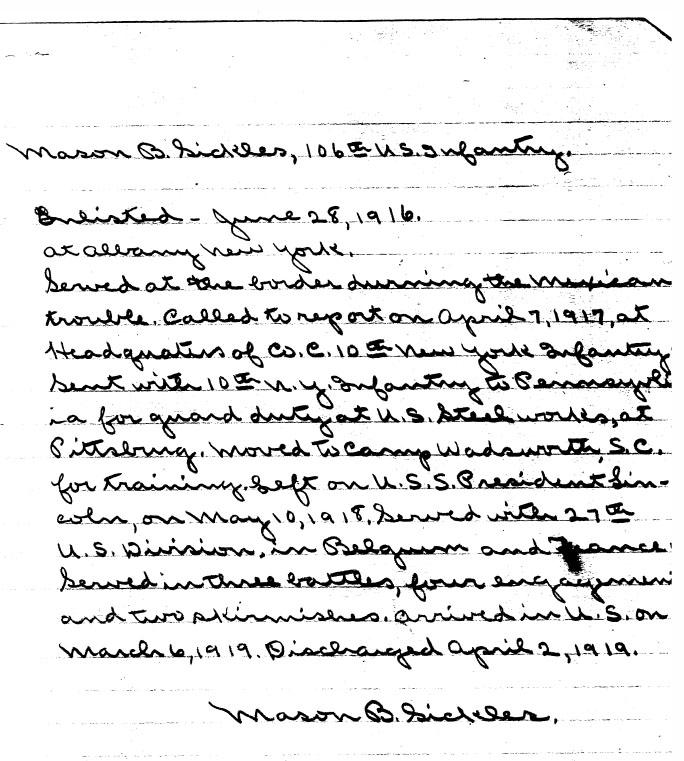 Mason B. Sickles, 106th U.S. Infantry.
Enlisted - June 28, 1916.
at Albany New York.
Served at the border durning the Mexican
trouble. Called to report on April 7, 1917, at
Headquaters of Co. C. 10th New York Infantry
Sent with 10th N.Y. Infantry to Pennsylv
ia for guard duty at U.S. Steel works, at
Pittsburg. Moved to Camp Wadsworth, S.C.
for training. Left on U.S.S. President Lin-
coln, on May 10, 1918, Served with 27th
U.S. Division, in Belgium and France
Served in three battles, four engagemen
and two skirmishes. Arrived in U.S. on
March 6, 1919. Discharged April 2, 1919.
Mason B. Sickles.